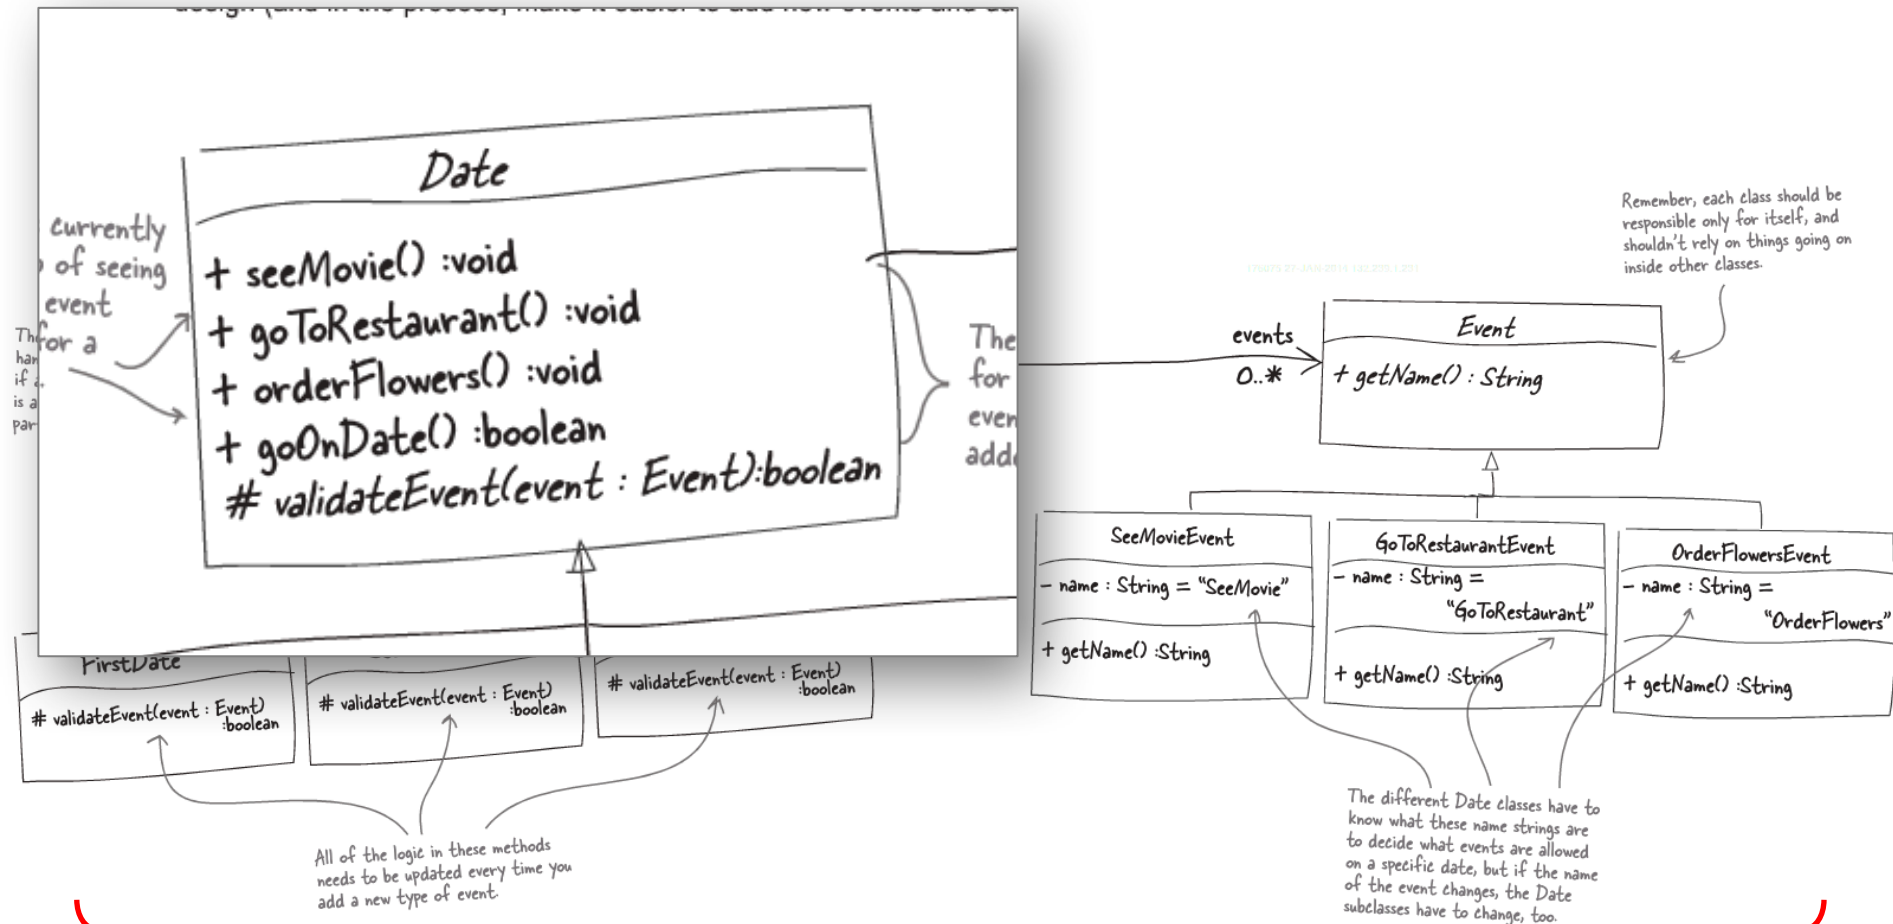 Date
currently
of seeing
event
for a
+ seeMovie() :void
+ goToRestaurant() :void
+ orderFlowers() :void
+ goOnDate() :boolean
# validateEvent(event : Event):boolean
The
for
if
is a
FirstDate
# validateEvent(event : Event)
:boolean
# validateEvent(event : Event)
:boolean
# validateEvent(event : Event)
:boolean
All of the logic in these methods
needs to be updated every time you
add a new type of event.
Remember, each class should be
responsible only for itself, and
shouldn't rely on things going on
inside other classes.
events
0..*
Event
+ getName() : String
SeeMovieEvent
- name : String = "SeeMovie"
+ getName() :String
GoToRestaurantEvent
- name : String =
"GoToRestaurant"
+ getName() :String
OrderFlowersEvent
- name : String =
"OrderFlowers"
+ getName() :String
The different Date classes have to
know what these name strings are
to decide what events are allowed
on a specific date, but if the name
of the event changes, the Date
subclasses have to change, too.